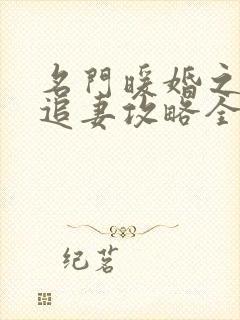 名門暖婚之
追妻攻略全
纪茗